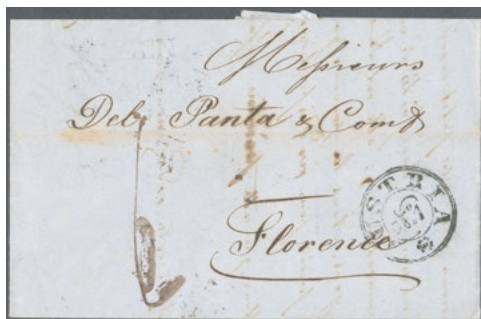 Messieurs
Del Panta & Comp
Florence
ISTRIA